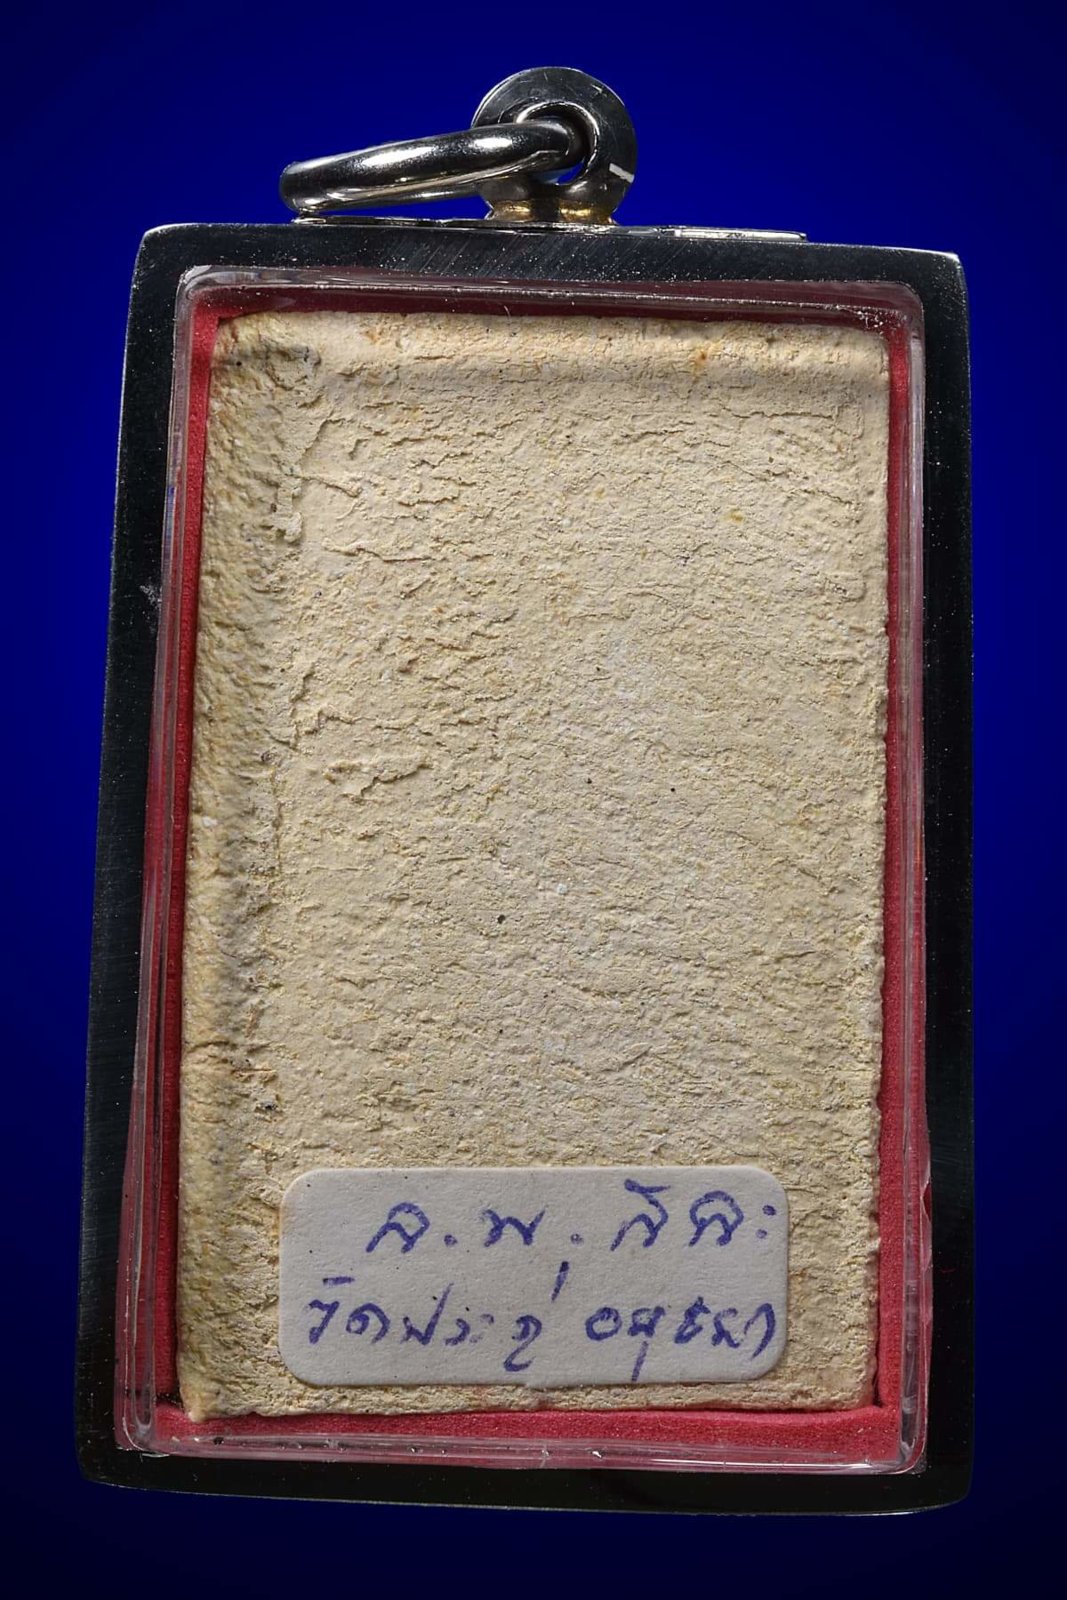 ล.พ. สีละ
วัดประดู่ อยุธยา